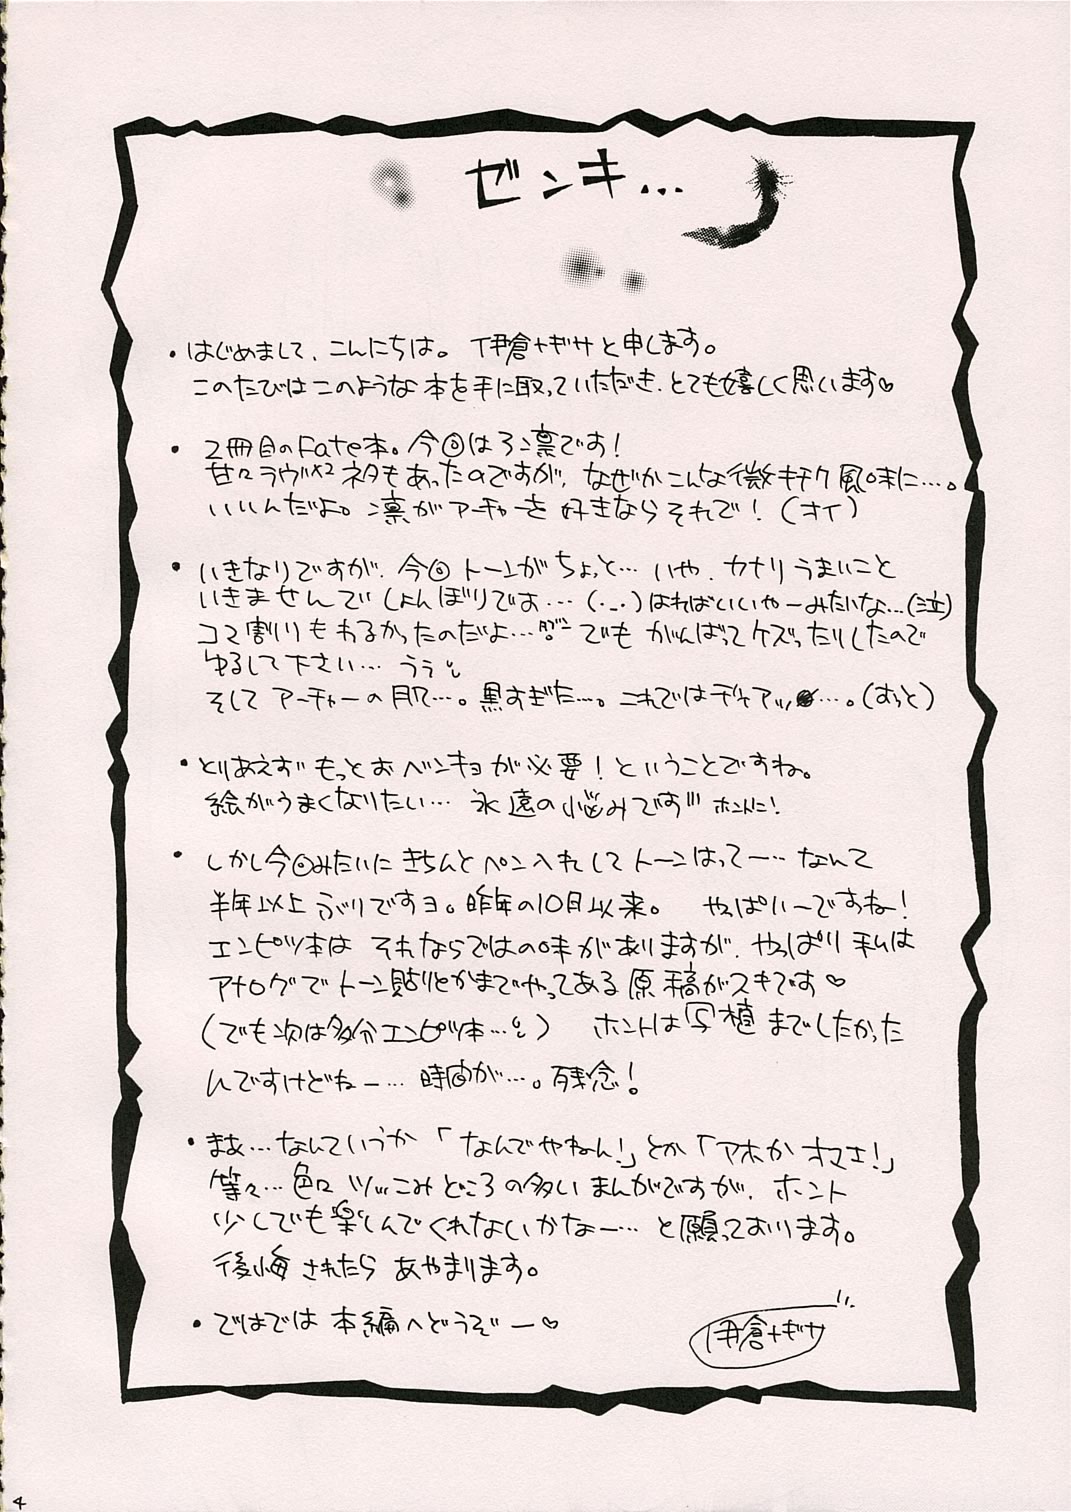 ゼンキ…
・はじめまして、こんにちは。 伊倉ナギサと申します。
このたびはこのような本を手に取っていただき、とても嬉しく思います♡
・2冊目のFate本。今回は弓凛です！
甘々ラヴ×2ネタもあったのですが、なぜかこんな微キチク風味に…。
いいんだよ。凛がアーチャーを好きならそれで！（オイ）
・いきなりですが、今回トーンがちょっと…いや、カナリうまいこと
いきませんでしょんぼりです…（._.）はればいいやーみたいな…（泣）
コマ割りもわるかったのだよ… でもがんばってケズったりしたので
ゆるして下さい… うぅ
そしてアーチャーの肌…。黒すぎた…。これでは…。（おっと）
・とりあえずもっとおベンキョが必要！ということですね。
絵がうまくなりたい… 永遠の悩みです ホントに！
・しかし今回みたいにきちんとペン入れしてトーンはってー…なんて
半年以上ぶりですヨ。昨年の10月以来。 やっぱいーですね！
エンピツ本はそれならではの味がありますが、やっぱり私は
アナログでトーン貼りとかまでやってある原稿がスキです♡
（でも次は多分エンピツ本…） ホントは写植までしたかった
んですけどねー… 時間が…。残念！
・まぁ…なんていうか「なんでやねん！」とか「アホかオマエ！」
等々…色々ツッこみどころの多いまんがですが、ホント
少しでも楽しんでくれないかなー…と願っております。
後悔されたらあやまります。
・ではでは本編へどうぞー♡
伊倉ナギサ
4